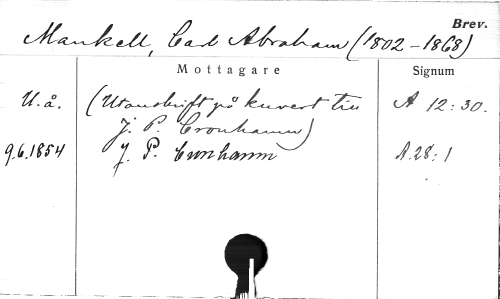 Brev.
Mankell, Carl Abraham (1802-1868)
Mottagare Signum
U.å. (Utanskrift på kuvert till A 12:30.
J. P. Cronhamn)
9.6.1854 J. P. Cronhamn A.28:1